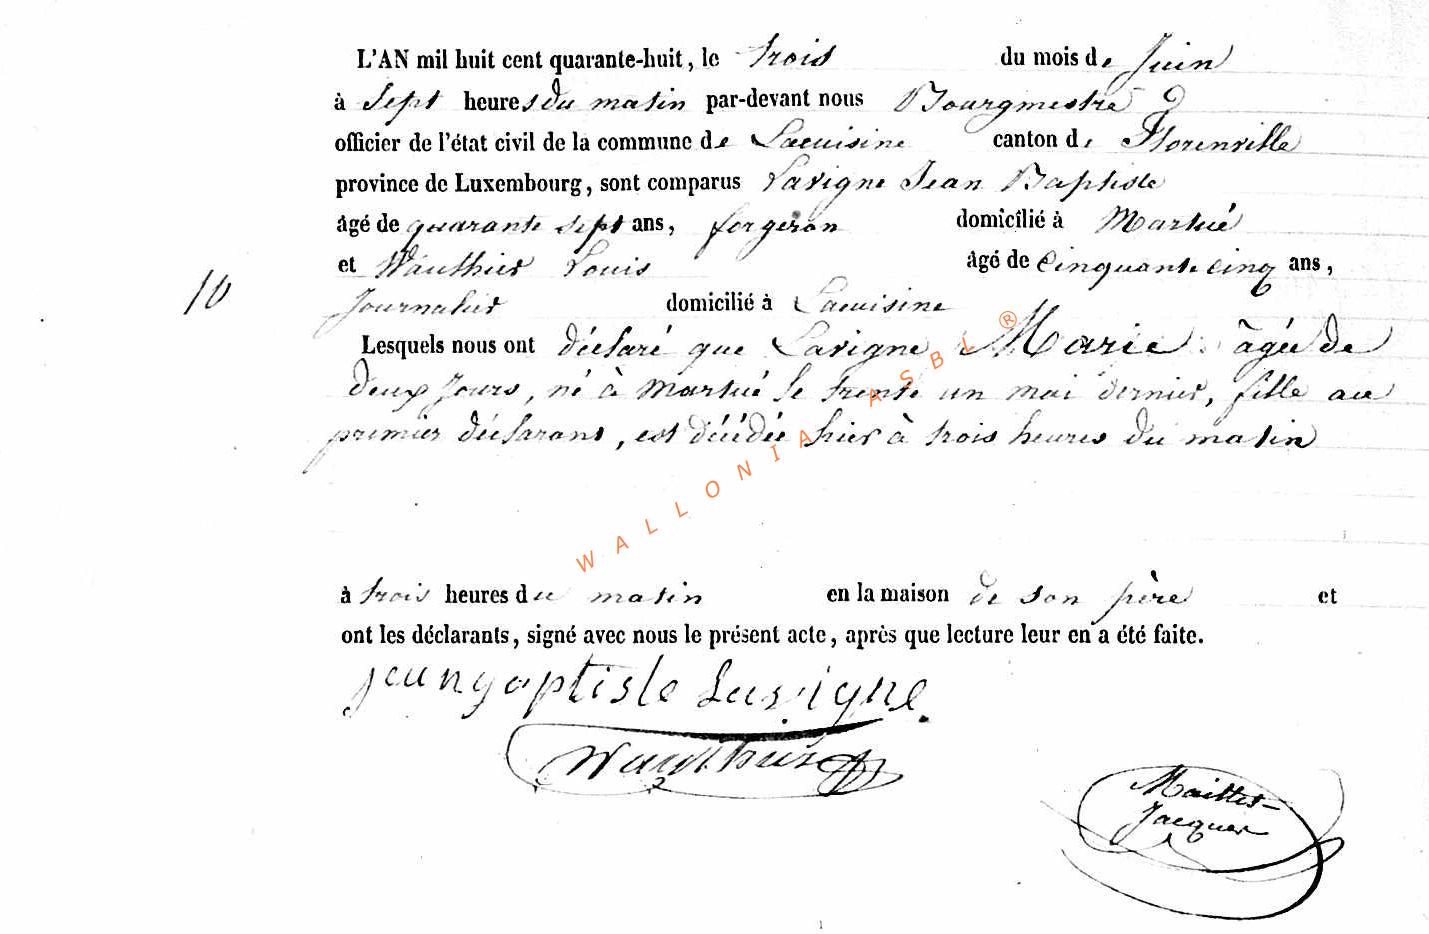 L'AN mil huit cent quarante-huit, le trois du mois de Juin
à Sept heures du matin par-devant nous Bourgmestre
officier de l'état civil de la commune de Lacuisine canton de Florenville
province de Luxembourg, sont comparus Lavigne Jean Baptiste
âgé de quarante sept ans, forgeron domicilié à Martué
et Wauthier Louis âgé de cinquante cinq ans,
10
Journalier domicilié à Lacuisine
Lesquels nous ont déclaré que Lavigne Marie âgée de
deux Jours, né à Martué le trente un mai dernier, fille au
premier déclarant, est décédée hier à trois heures du matin
WALLONIA ASBL ®
à trois heures du matin en la maison de son père et
ont les déclarants, signé avec nous le présent acte, après que lecture leur en a été faite.
jean baptiste Lavigne
Wauthier
Jacques